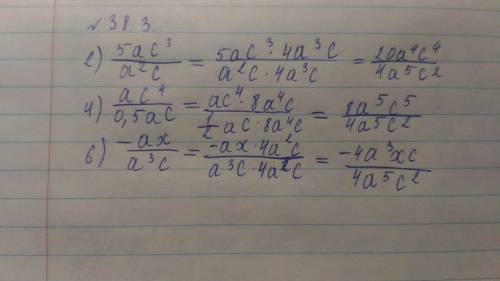 № 38.3.
2) 5ac³/a²c = 5ac³·4a³c/a²c·4a³c = 20a⁴c⁴/4a⁵c²
4) ac⁴/0,5ac = ac⁴·8a⁴c/½ac·8a⁴c = 8a⁵c⁵/4a⁵c²
6) -ax/a³c = -ax·4a²c/a³c·4a²c = -4a³xc/4a⁵c²